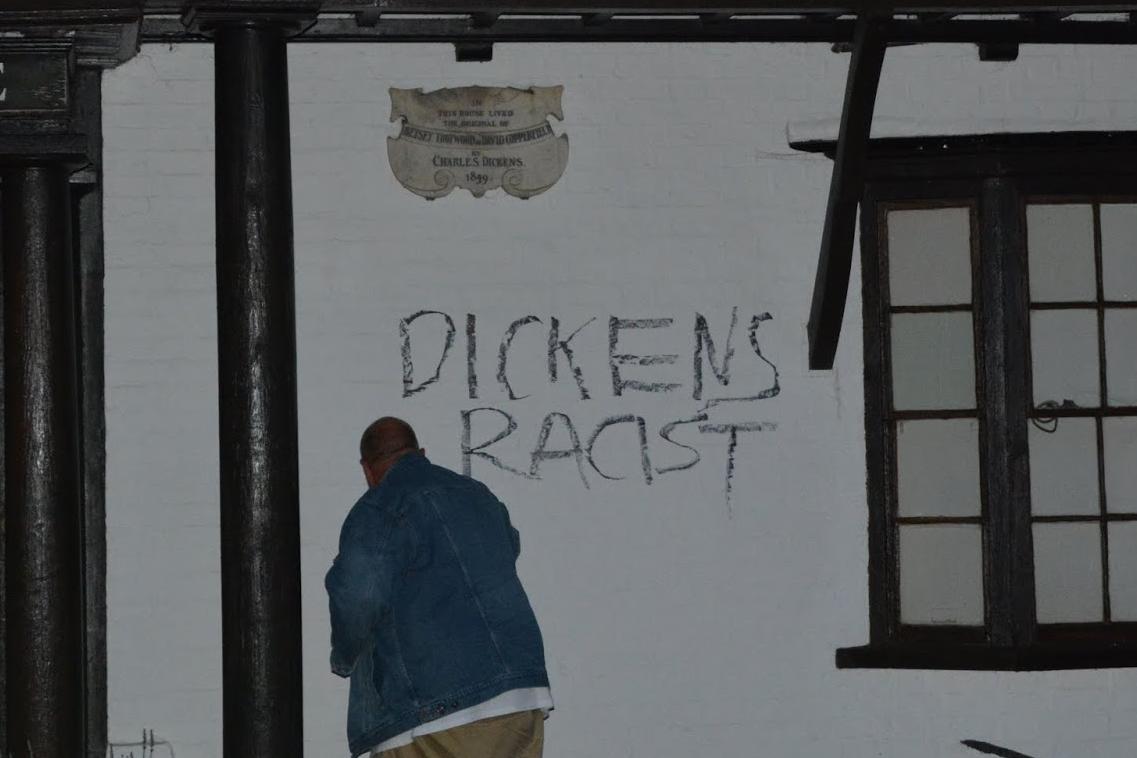 E
IN
THIS HOUSE LIVED
THE ORIGINAL OF
BETSEY TROTWOOD IN DAVID COPPERFIELD
BY
CHARLES DICKENS.
1849.
DICKENS
RACIST